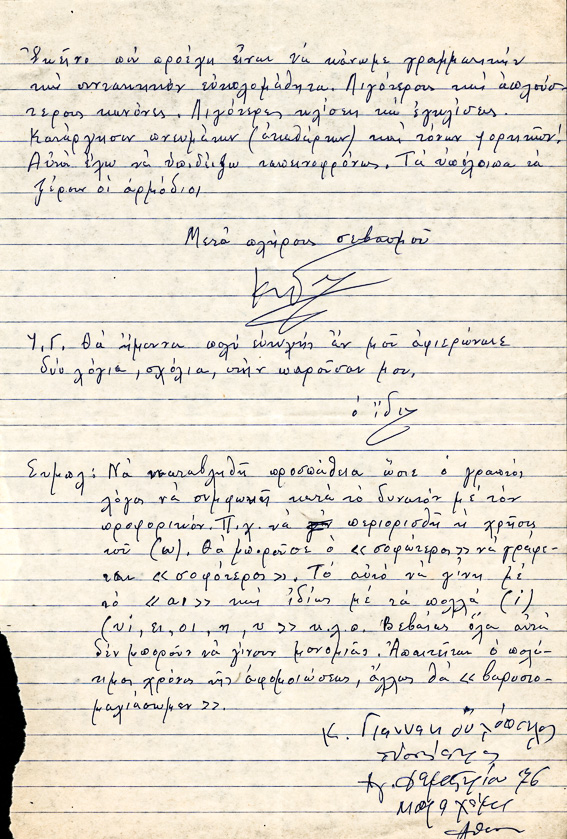 Ἐκεῖνο ποὺ προέχει εἶναι νὰ κάνωμε γραμματικὴν
καὶ συντακτικὸν εὐκολομάθητα. Λιγότερους καὶ ἁπλούσ-
τερους κανόνες. Λιγότερες κλίσεις καὶ ἐγκλίσεις.
Κατάργησιν πνευμάτων (ἀκαθάρτων) καὶ τόνων φορητῶν!
Αὐτὰ ἔχω νὰ ὑποδείξω ταπεινοφρόνως. Τὰ ὑπόλοιπα τὰ
ξέρουν οἱ ἁρμόδιοι
Μετὰ πλήρους σεβασμοῦ
Υ.Γ. Θὰ ἤμουνα πολὺ εὐτυχὴς ἂν μοῦ ἀφιερώνατε
δύο λόγια, σχόλια, στὴν παροῦσαν μου.
ὁ ἴδιος
Συμπλ: Νὰ καταβληθῆ προσπάθεια ὥστε ὁ γραπτὸς
λόγος νὰ συμφωνῆ κατὰ τὸ δυνατὸν μὲ τὸν
προφορικόν. Π.χ. νὰ περιορισθῆ ἡ χρῆσις
τοῦ (ω). Θὰ μποροῦσε ὁ «σοφώτερος» νὰ γράφε-
ται «σοφότερος». Τὸ αὐτὸ νὰ γίνη μὲ
τὸ «αι» καὶ ἰδίως μὲ τὰ πολλὰ (ι)
(υι, ει, οι, η, υ» κ.λ.π. Βεβαίως ὅλα αὐτὰ
δὲν μποροῦν νὰ γίνουν μονομιᾶς. Ἀπαιτεῖται ὁ πολύ-
τιμος χρόνος τῆς ἀφομοιώσεως, ἄλλως θὰ «βαρυστο-
μαχιάσωμεν».
Κ. Γιαννακουλόπουλος
συνταξ
Ἁγ. Δημητρίου 76
Ἀθῆναι